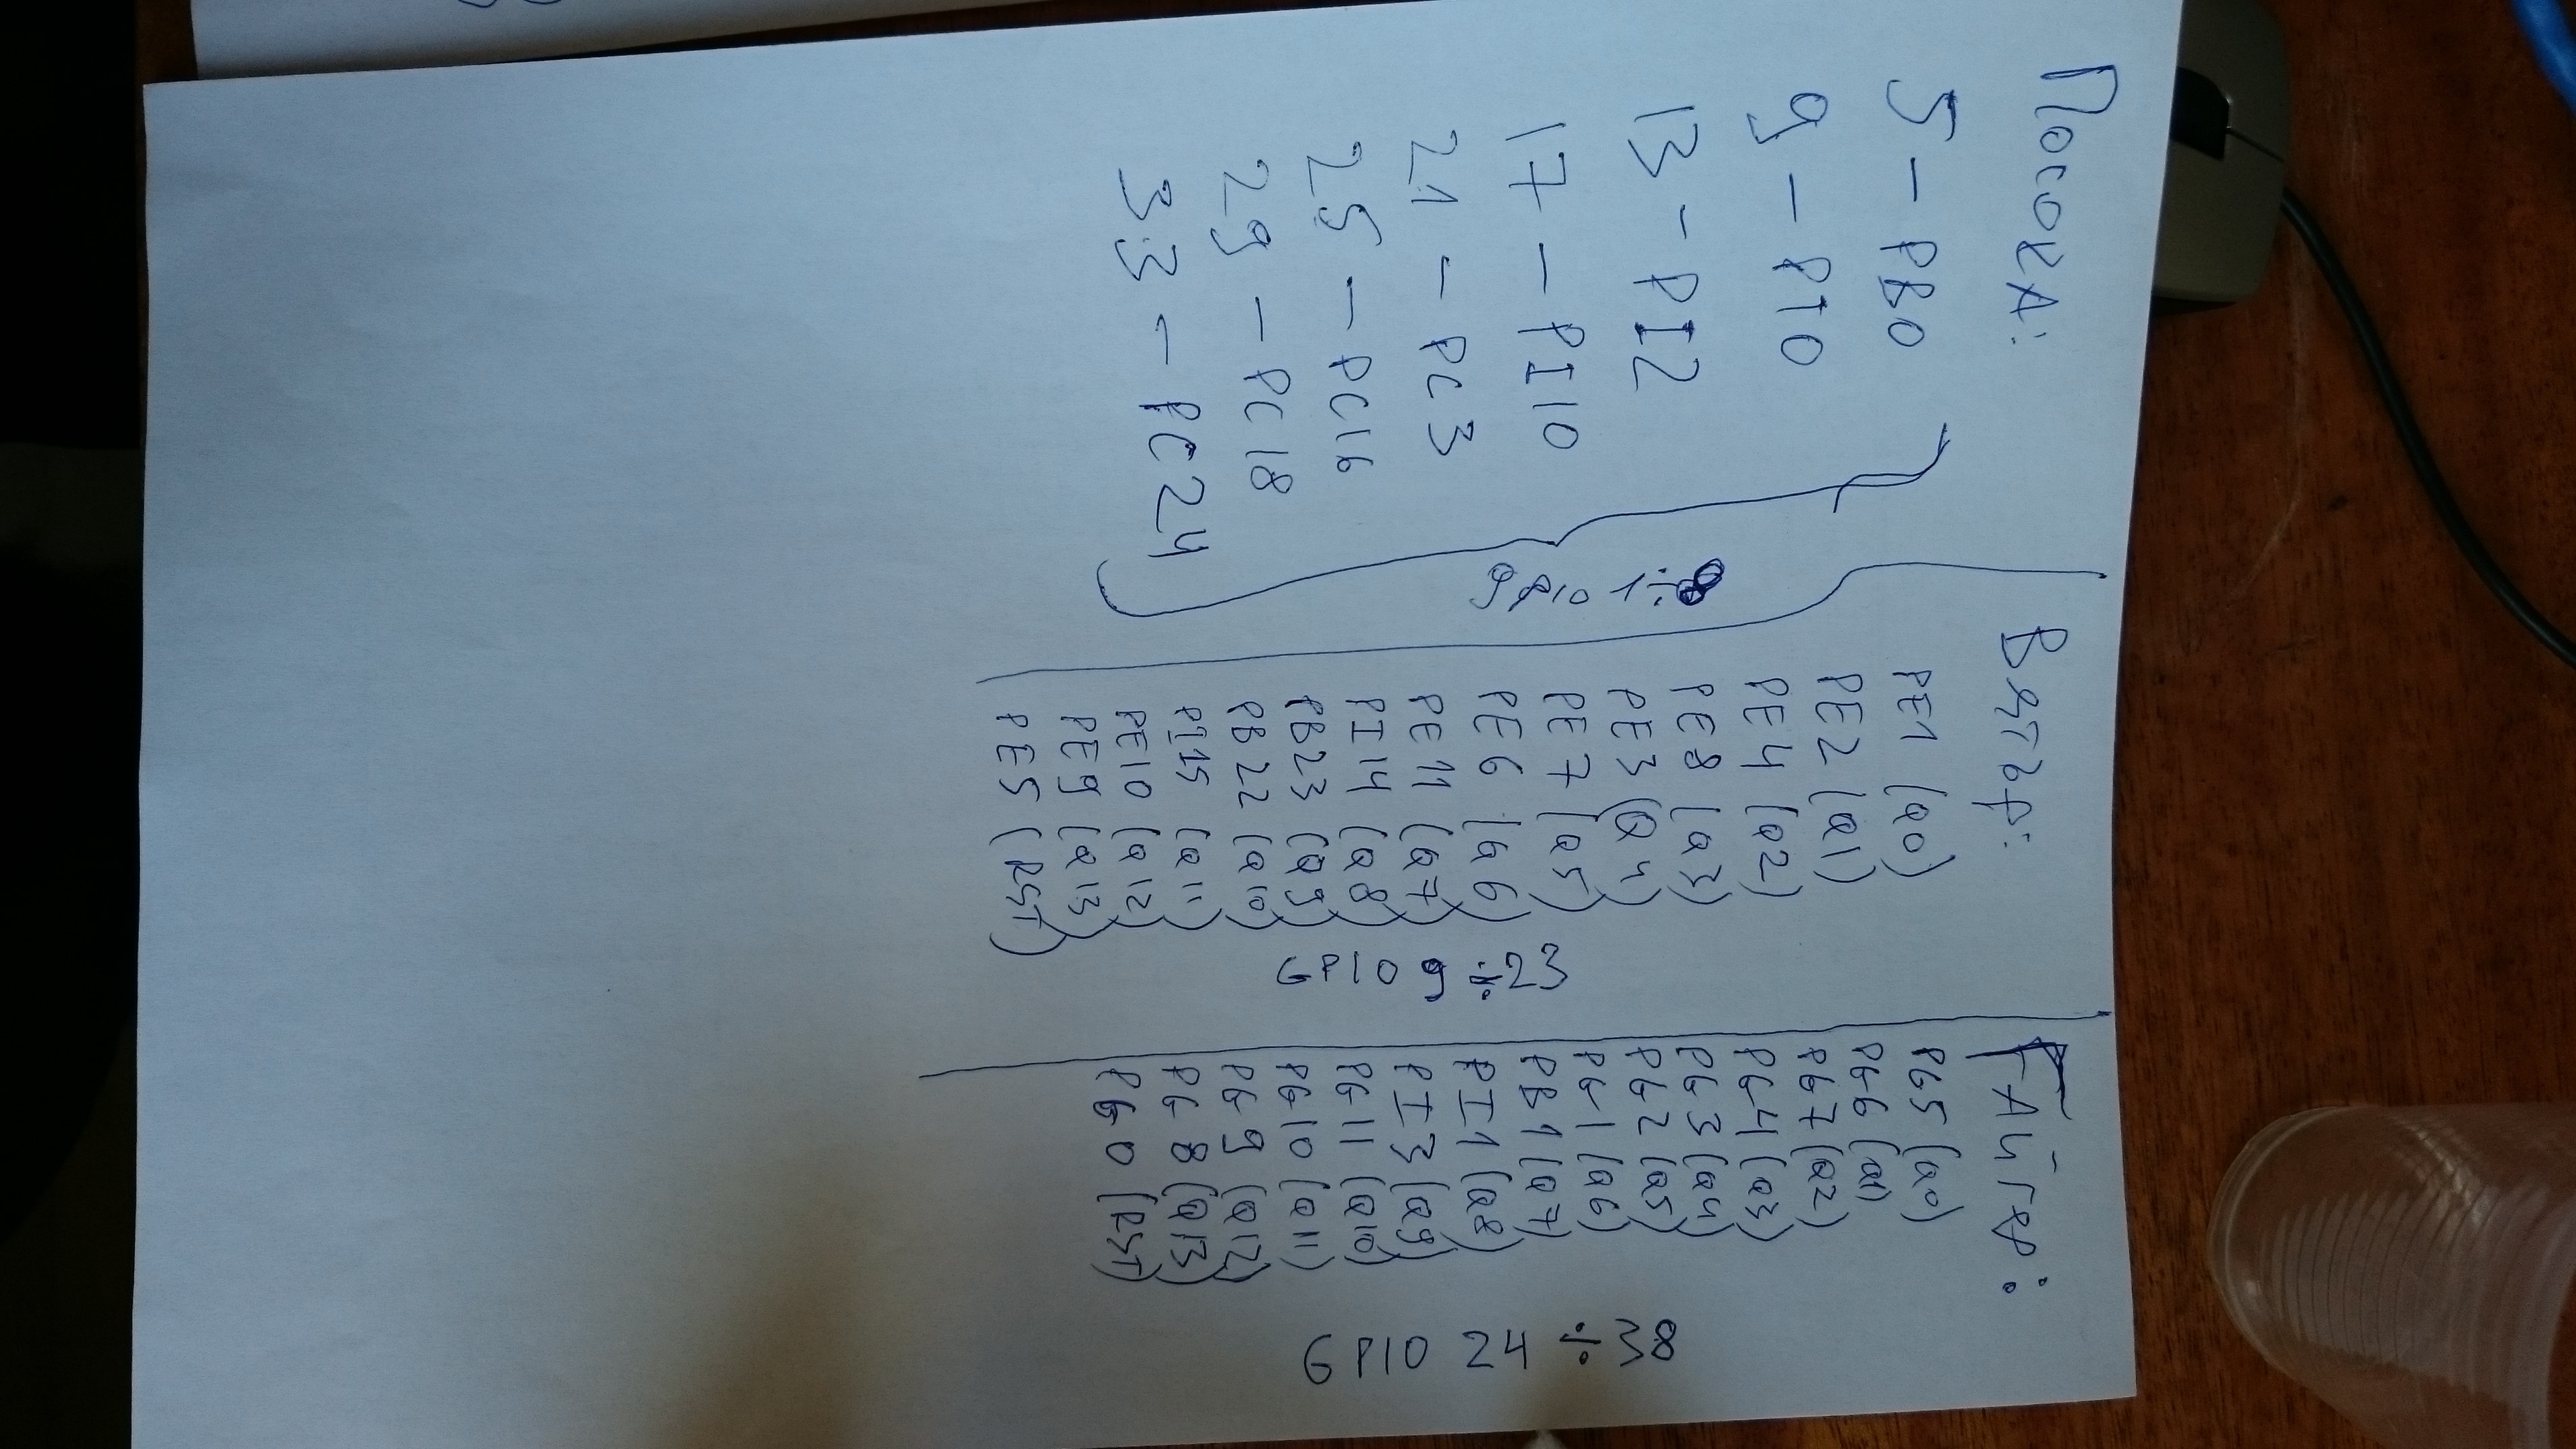 Посока:
5 – PB0
9 – PI0
13 – PI2
17 – PI10
21 – PC3
25 – PC16
29 – PC18
33 – PC24
gpio 1÷8
Вятър:
PE1 (Q0)
PE2 (Q1)
PE4 (Q2)
PE8 (Q3)
PE3 (Q4)
PE7 (Q5)
PE6 (Q6)
PE11 (Q7)
PI14 (Q8)
PB23 (Q9)
PB22 (Q10)
PI15 (Q11)
PE10 (Q12)
PE9 (Q13)
PE5 (RST)
GPIO 9÷23
Гайгер:
PG5 (Q0)
PG6 (Q1)
PG7 (Q2)
PG4 (Q3)
PG3 (Q4)
PG2 (Q5)
PG1 (Q6)
PB1 (Q7)
PI1 (Q8)
PI3 (Q9)
PG11 (Q10)
PG10 (Q11)
PG9 (Q12)
PG8 (Q13)
PG0 (RST)
GPIO 24÷38